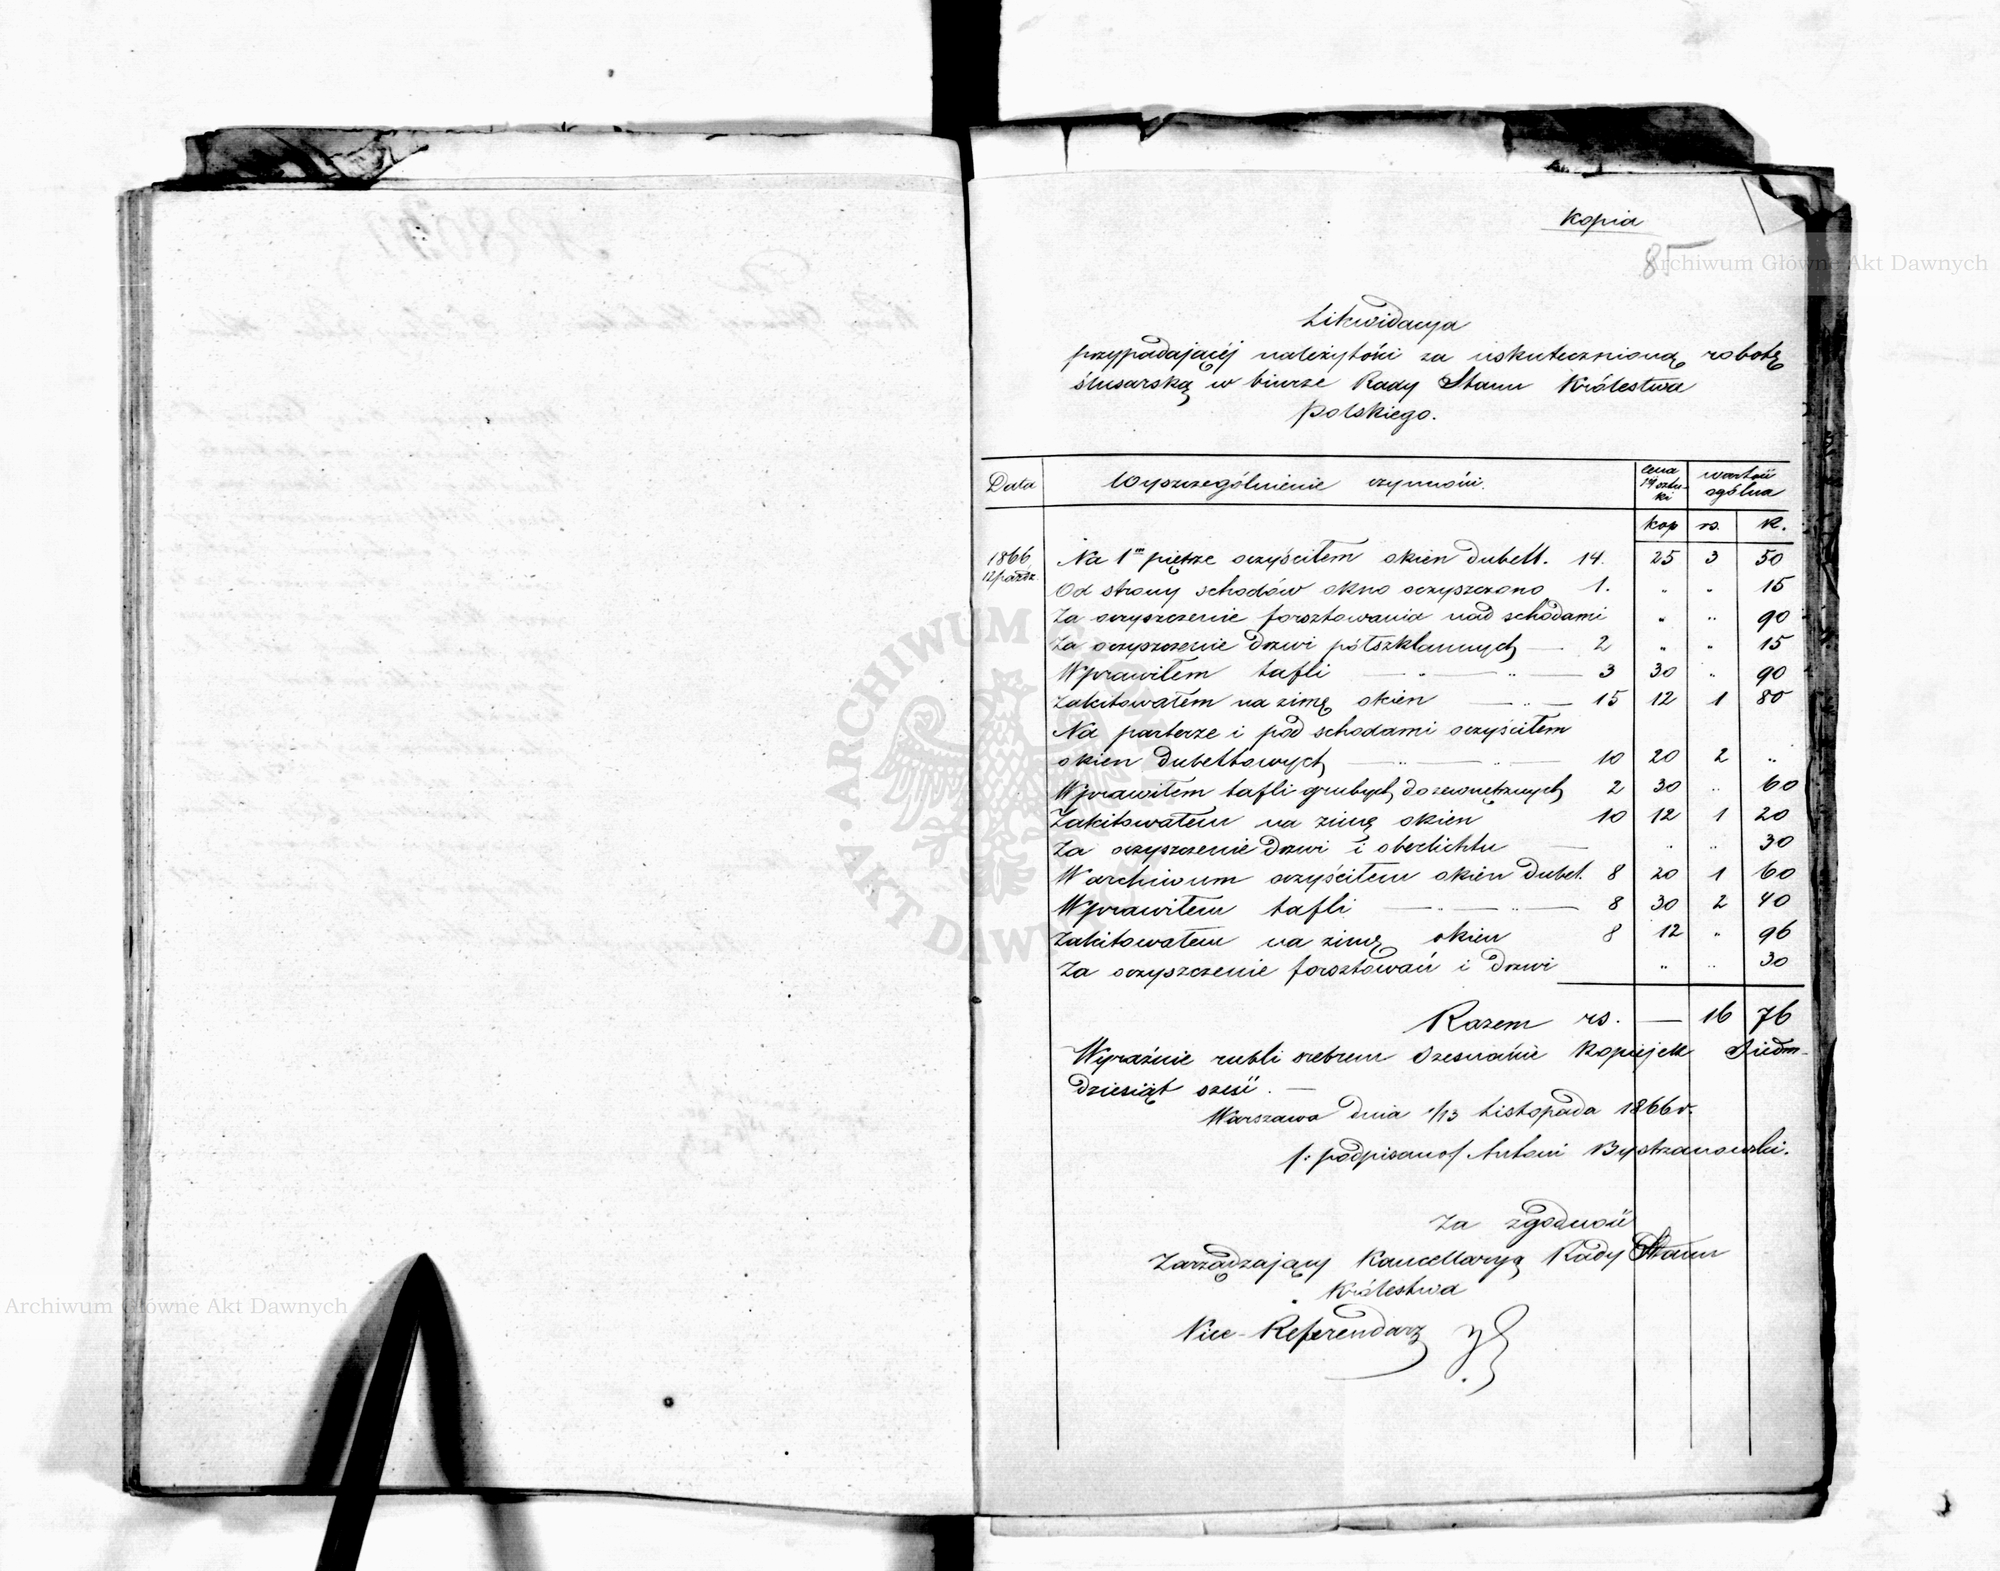 Kopia
85
Likwidacya
przypadającéj należytości za uskutecznioną robotę
ślusarską w biurze Rady Stanu Królestwa
Polskiego.
Data Wyszczególnienie czynności. cena 1éj sztuki wartość ogólna
kop rs. k.
1866 12/paźdz. Na 1m piętrze oczyściłem okien dubelt. 14. 25 3 50
Od strony schodów okno oczyszczono 1. " " 15
Za oczyszczenie forsztowania nad schodami " " 90
Za oczyszczenie drzwi półszklannych — 2 " " 15
Wprawiłem tafli — " — " — 3 30 " 90
Zakitowałem na zimę okien — " — 15 12 1 80
Na parterze i pod schodami oczyściłem
okien dubeltowych — " — " — 10 20 2 "
Wprawiłem tafli grubych do zewnętrznych 2 30 " 60
Zakitowałem na zimę okien 10 12 1 20
Za oczyszczenie drzwi i oberlichtu — " " 30
W archiwum oczyściłem okien dubel. 8 20 1 60
Wprawiłem tafli — " — " — 8 30 2 40
Zakitowałem na zimę okien 8 12 " 96
Za oczyszczenie forsztowań i drzwi " " 30
Razem rs. — 16 76
Wyraźnie rubli srebrem szesnaście kopiejek siedm-
dziesiąt sześć. —
Warszawa dnia 1/13 Listopada 1866 r.
/: podpisano/ Antoni Bystrzanowski.
Za zgodność
Zarządzający Kancellaryą Rady Stanu
Królestwa
Vice-Referendarz
Archiwum Główne Akt Dawnych
Archiwum Główne Akt Dawnych
ARCHIWUM
AKT DAWNYCH